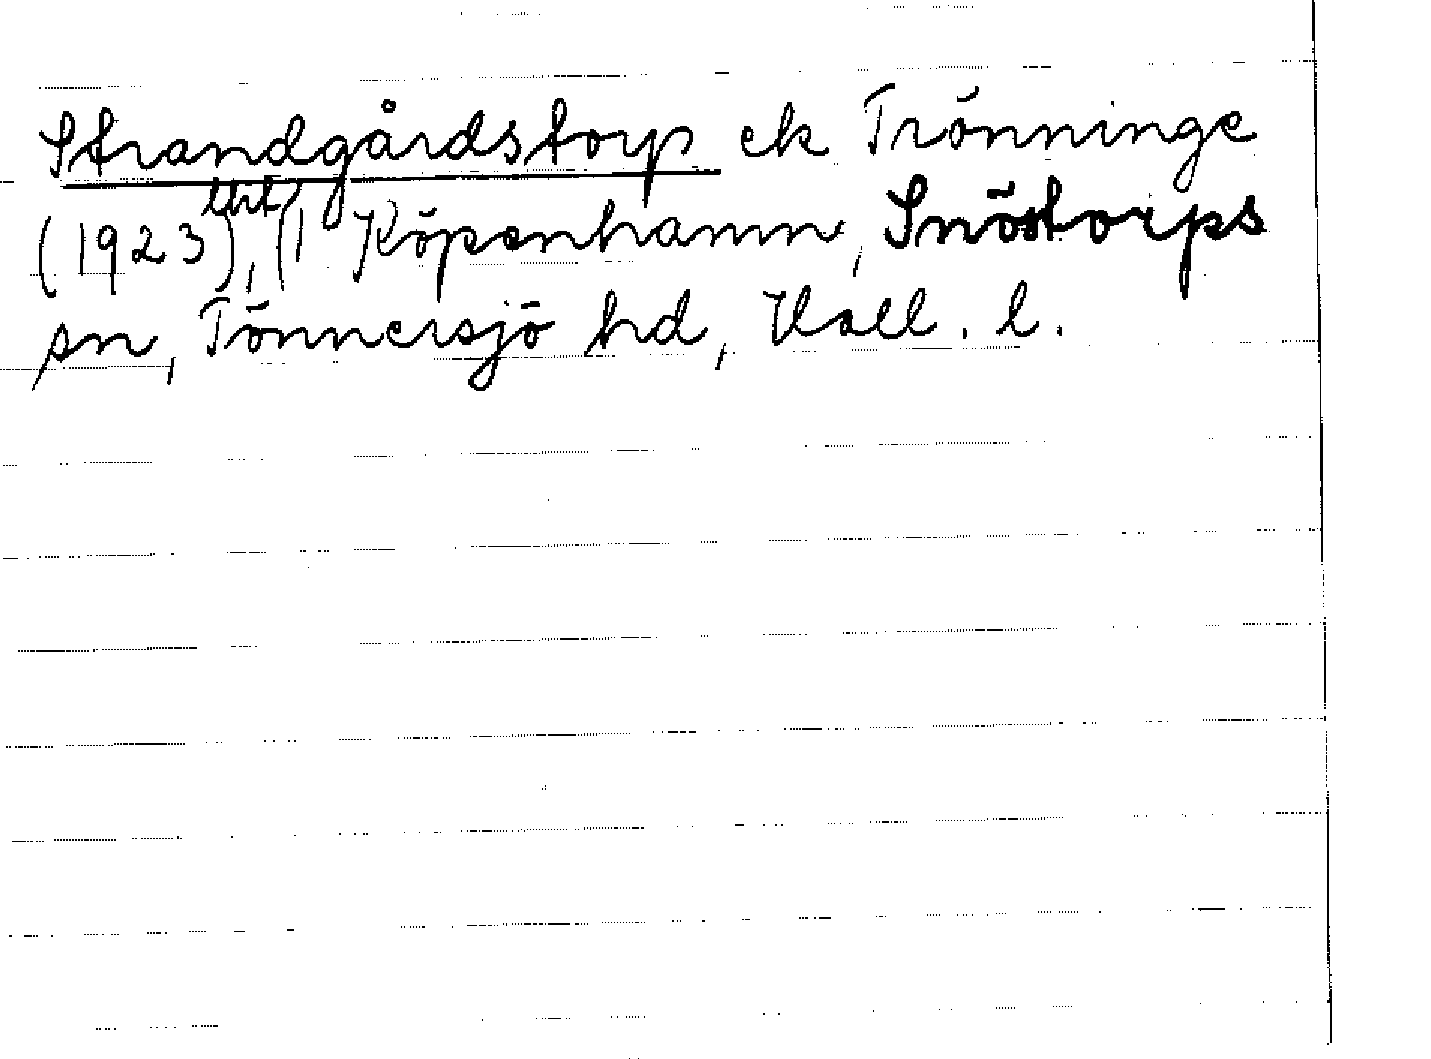 Strandgårdstorp ek Trönninge
(1923), (1 Köpenhamn, Snöstorps
sn, Tönnersjö hd, Hall. l.